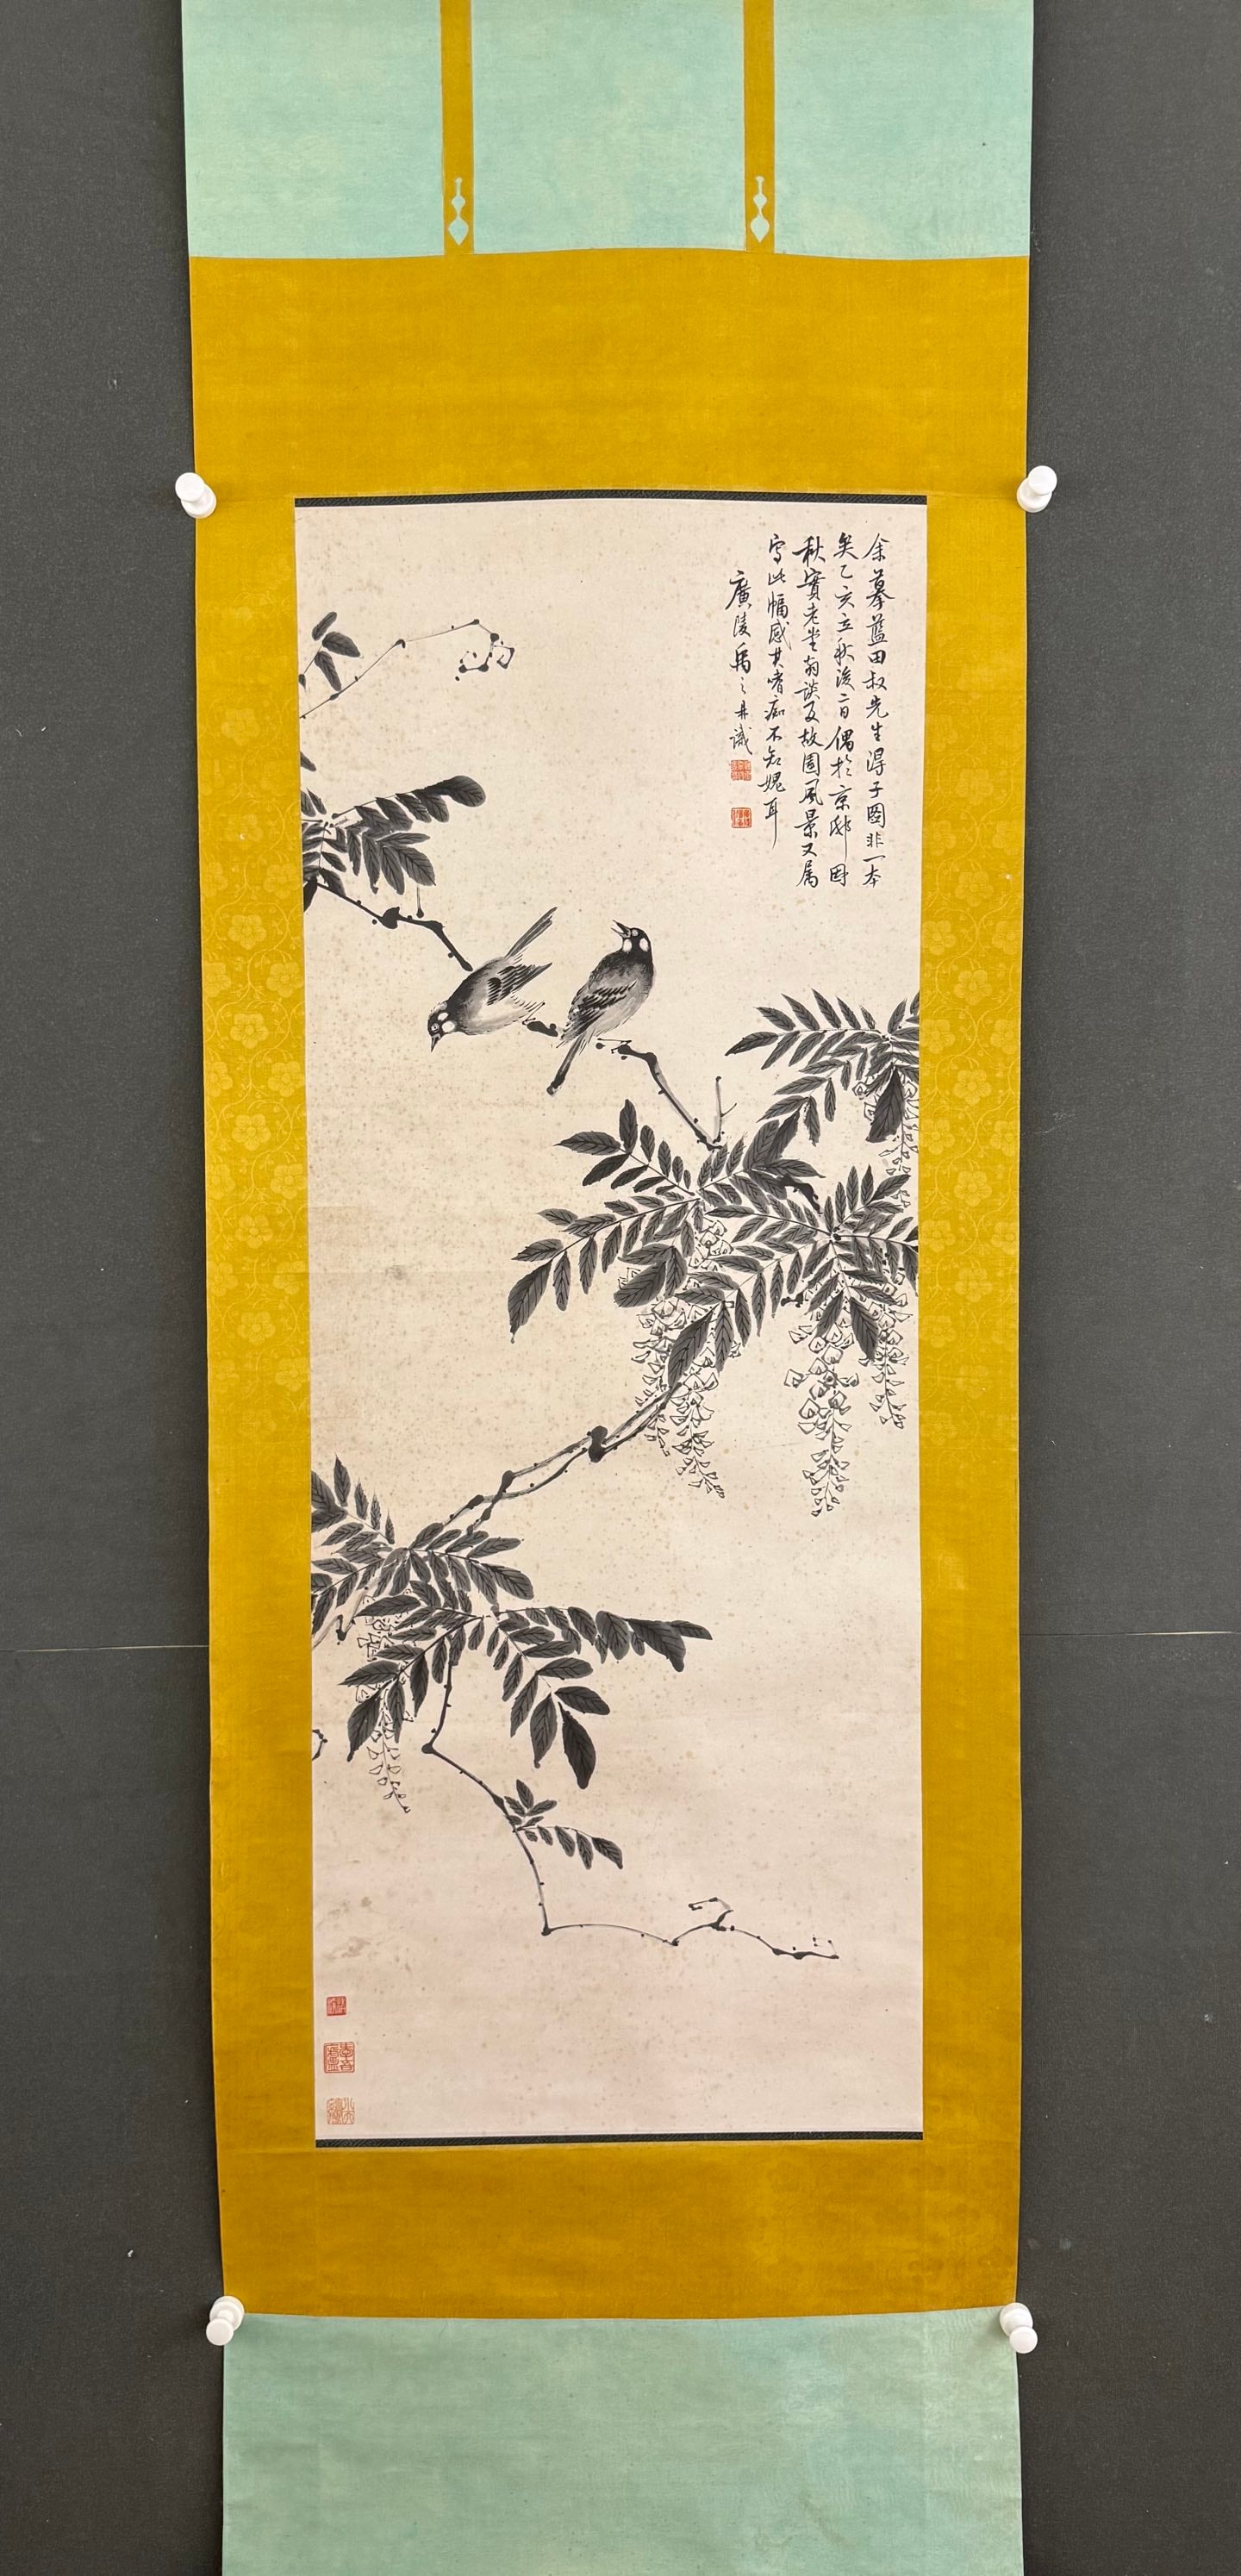 余摹藍田叔先生得子圖非一本
矣乙亥立秋後二日偶於京邸因
秋實老坐翁談及故園風景又属
寫此幅感其嗜痂不知媿耳
廣陵禹之鼎識